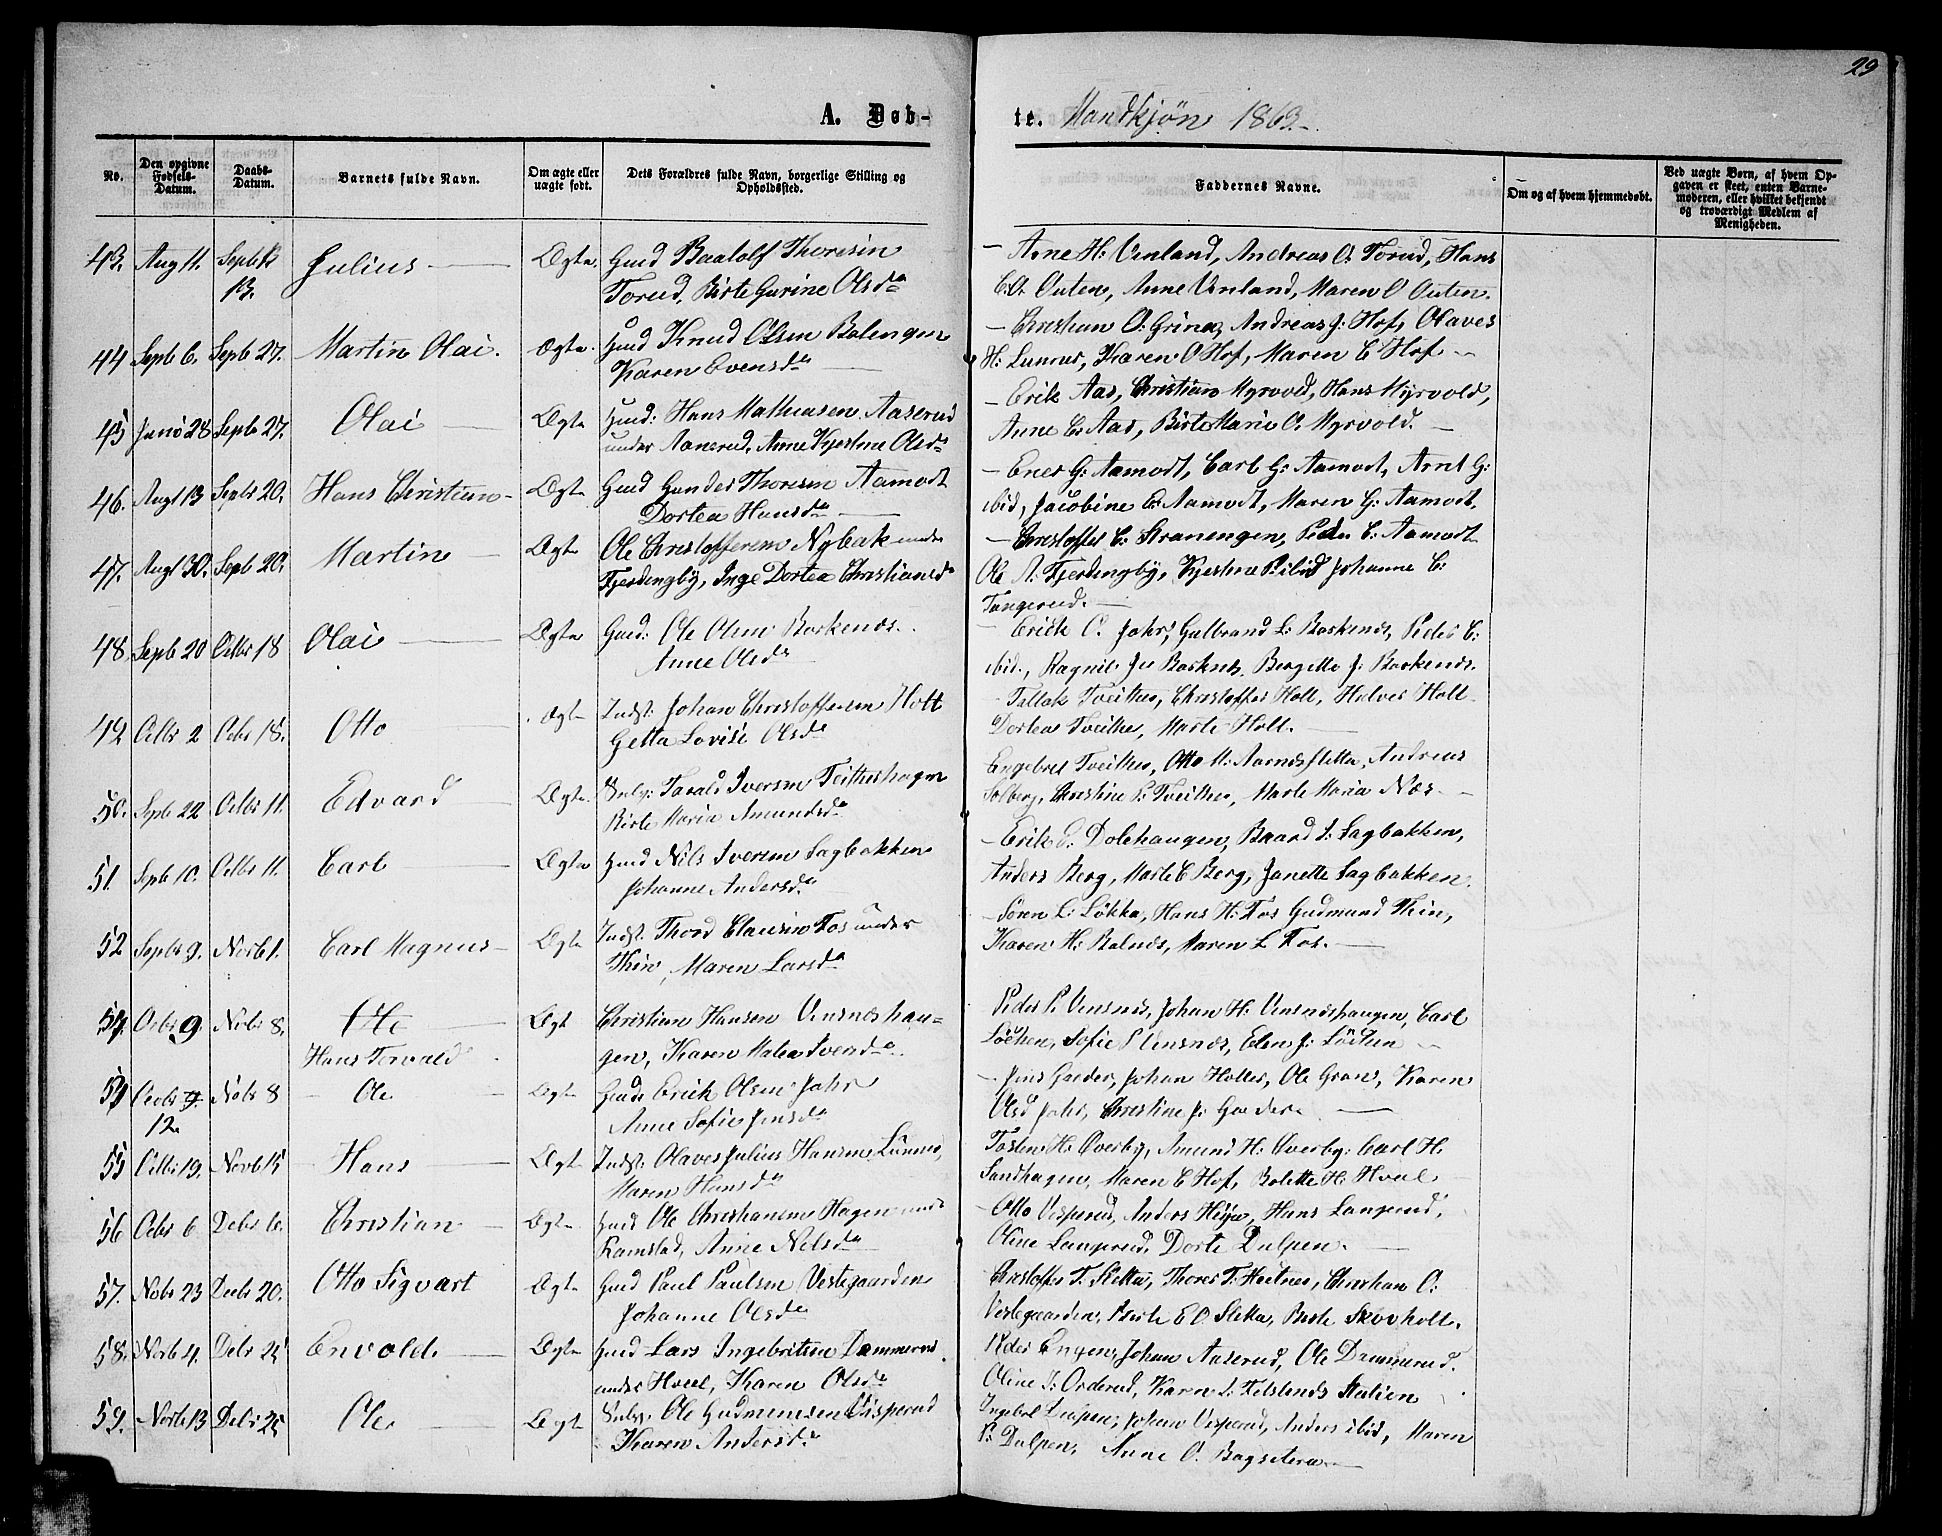 29
A. Døb-
te. Mandkjøn 1863.
No.
Den opgivne Fødsels-Datum.
Daabs-Datum.
Barnets fulde Navn.
Om ægte eller uægte født.
Dets Forældres fulde Navn, borgerlige Stilling og Opholdssted.
Faddernes Navne.
Om og af hvem hjemmedøbt.
Ved uægte Børn, af hvem Op-
gaven er skeet, enten Barne-
moderen, eller hvilket bekjendt
og troværdigt Medlem af
Menigheden.
43. Aug 11. Septb 13. Julius Ægte. Gmd Baatolf Thoresen
Torud, Birte Gurine Olsda
Arne H: Venland, Andreas O. Torud, Hans
C. O. Outen, Anne Venland, Maren O Outen.
44 Septb 6. Septb 27. Martin Olai. Ægte. Gmd Knud Olsen Bolengen
Karen Evensda
Christian O: Grina, Andreas J: Hof, Olaves
H: Lunnes, Karen O Hof, Maren C Hof.
45 Juni 28 Septb 27. Olai Ægte Hmd: Hans Mathiasen Aaserud
under Aanerud, Anne Kjestine Olsda
Erik Aas, Christian Myrvold, Hans Myrvold,
Anne C. Aas, Birte Marie O. Myrvold.
46. Augt 13 Septbr 20. Hans Christian Ægte Gmd Gunder Thoresen Aamodt
Dortea Hansda
Ener G: Aamodt, Carl G: Aamodt, Arnt G:
ibid, Jacobine E. Aamodt, Maren G: Aamodt.
47. Augt 30. Septb 20. Martin Ægte Ole Christoffersen Nybak under
Fjerdingby, Inge Dortea Christiansda
Christoffer C: Kranengen, Peder C. Aamodt
Ole A. Fjerdingby, Kjestine P. ibid Johanne C.
Tangerud.
48. Septb 20 Octbr 18 Olai Ægte Gmd: Ole Olsen Boskenæs.
Anne Olsda
Erick O. Jahr, Gulbrand L: Boskenæs, Peder C:
ibid., Ragnil Boskenæs, Bergette J: Boskenæs.
49 Octbr 2 Octbr 18. Otto Ægte Indst. Johan Christoffersen Holt
Getta Lovise Olsda
Tallak Tveither, Christoffer Holt, Halvor Holt
Dortea Tveither, Marte Holt.
50. Septb 22 Octbr 11. Edvard Ægte. Tarald Iversen Teitherhagen
Birte Maria Amundsda
Engebret Tveither, Otto M. Aarnæssletta, Andreas
Solberg, Christine P. Tveither, Marte Maria Næs
51. Septb 10. Octbr 11. Carl Ægte Hmd Nils Iversen Sagbakken
Johanne Andersda
Erik E. Dolehaugen, Baard I. Sagbakken,
Anders Berg, Marte C Berg, Janette Sagbakken.
52 Septbr 9. Novb 1. Carl Magnus Ægte Indst. Thord Clausen Fos under
Thien, Maren Larsda
Søren L. Løkka, Hans H. Fos Gudmund Thien,
Karen H. Balnæs, Maren L Fos.
54. Octbr 9. Novbr 8. Ole
Hans Torvald Ægt Christian Hansen Vensneshau-
gen, Karen Malea Iversda
Peder P. Vensnæs, Johan H: Vensnæshaugen, Carl
Løchen, Sofie P Vensnæs, Elen J. Løchen
54 Octbr 9. 12. Novbr 8 Ole Ægt Gmd Erick Olsen Jahr
Anne Sofie Jensda
Jens Gæder, Johan Holter, Ole Grans, Karen
Olsd Jahr, Christine J. Gæder
55 Octbr 19. Novb 15 Hans Ægt Indst. Olaves Julius Hansen Lunnes,
Maren Hansda
Tosten H. Overby, Amund H. Overby, Carl H.
Sandhagen, Maren C Hof, Bolette H. Hval
56 Octbr 6 Decbr 6. Christian Ægte Hmd Ole Christiansen Hagen under
Ramstad, Anne Nilsda
Otto Vesperud, Anders Heja, Hans Langerud,
Oline Langerud, Dorte Dulpen.
57. Novbr 23 Decbr 20. Otto Sigvart Ægte Gmd Paul Paulsen Vestegaarden
Johanne Olsda
Christoffer T. Sletta, Thores T. Heitnes, Christian O.
Vestegaarden, Berte E O. Sletta, Berte Skovholt.
58. Novb 4. Decbr 25 Envold Ægte Hmd Lars Ingebretsen Dammerud
under Hval, Karen Olsda
Peder Engen, Johan Aaserud, Ole Dammerud.
Oline I. Orderud, Karen I. Stalien
59. Novb 13 Decbr 25 Ole Ægte Ole Gudmundsen Vesperud
Karen Andersda
Ingebret Dulpen, Johan Vesperud, Anders ibid, Maren
P. Dulpen, Anne O. Bagsetera